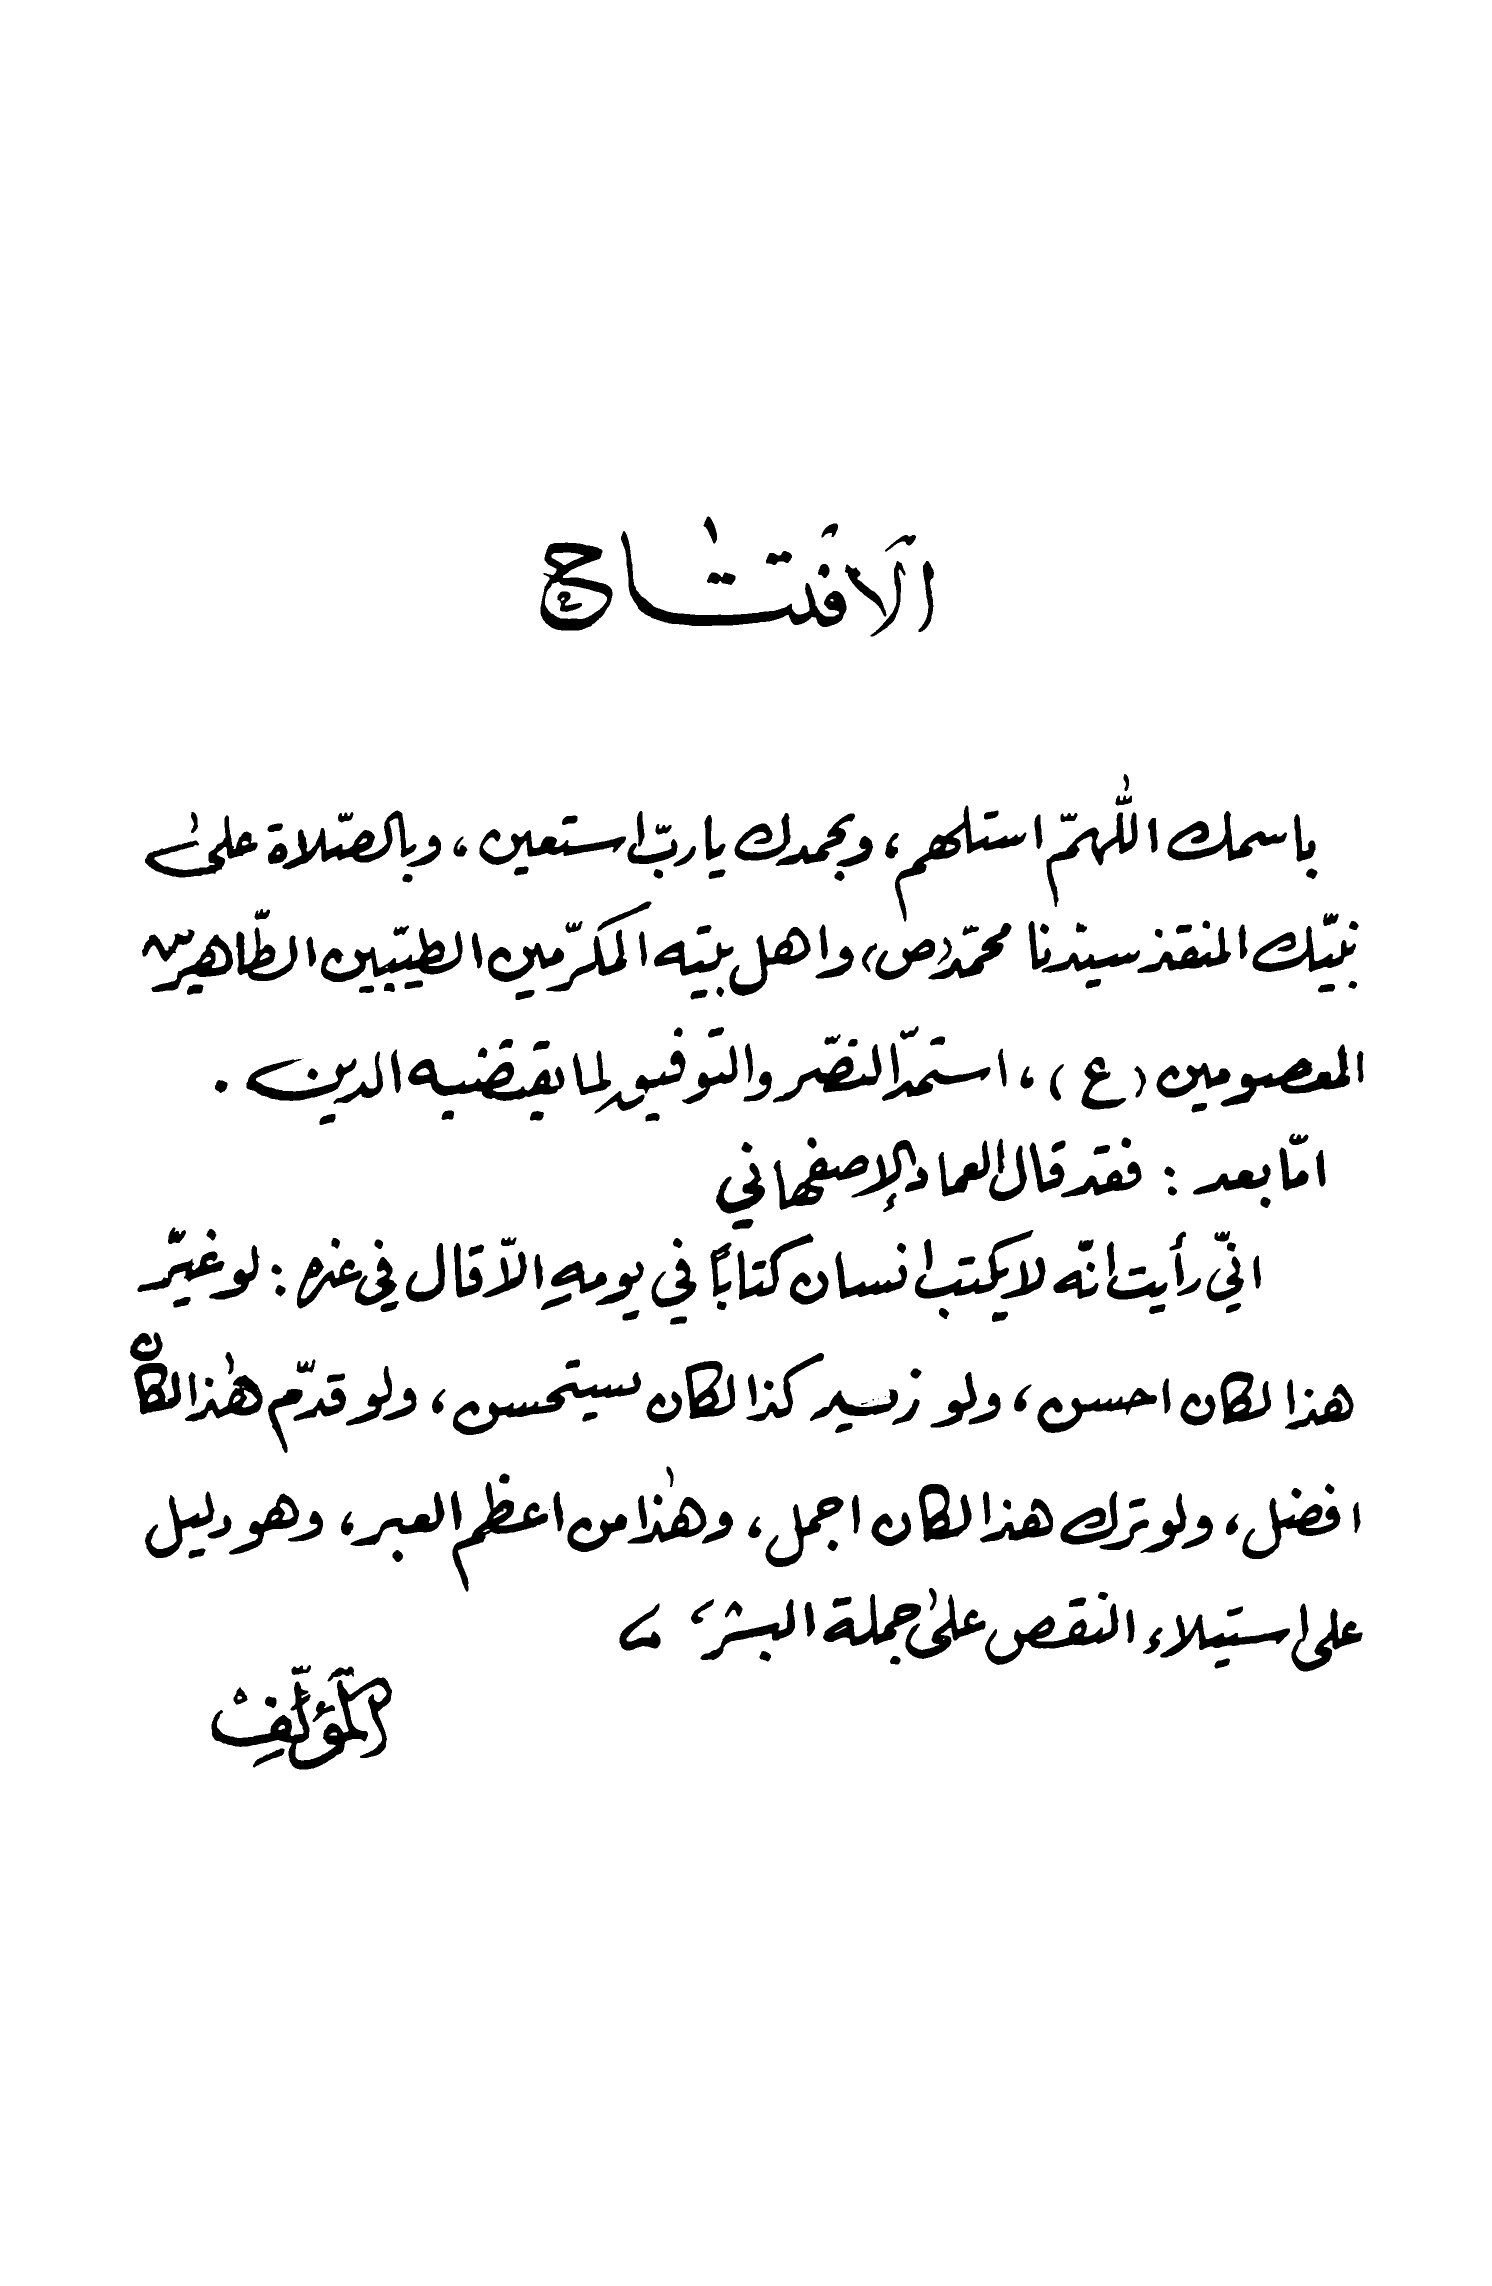 الافتتاح
باسمك اللّهمّ استلهم، وبحمدك ياربّ استعين، وبالصّلاة على
نبيّك المنقذ سيدنا محمّد (ص)، واهل بيته المكرّمين الطيّبين الطّاهرين
المعصومين (ع)، استمدّ النصّر والتوفيق لما يقتضيه الدين .
امّا بعد : فقد قال العماد الإصفهاني
انيّ رأيت انّه لا يكتب انسان كتابًا في يومهِ الاّ قال في غده : لو غيّر
هذا لكان احسن، ولو زيد كذا لكان يستحسن، ولو قدّم هٰذا لكان
افضل، ولو ترك هذا لكان اجمل، وهٰذا من اعظم العبر، وهو دليل
على استيلاء النقص على جملة البشر،
المؤلّف